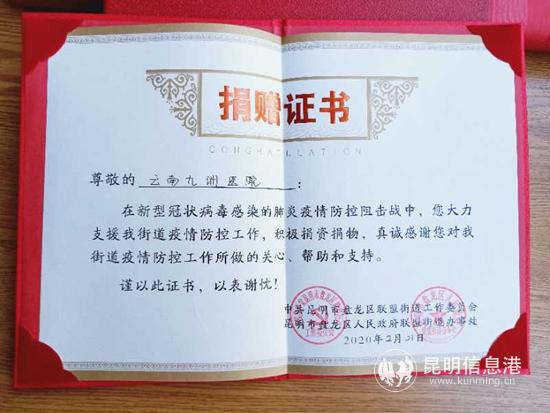 捐赠证书
CONGRATULATION
尊敬的 云南九洲医院 ：
在新型冠状病毒感染的肺炎疫情防控阻击战中，您大力
支援我街道疫情防控工作，积极捐资捐物，真诚感谢您对我
街道疫情防控工作所做的关心、帮助和支持。
谨以此证书，以表谢忱！
中共昆明市盘龙区联盟街道工作委员会
昆明市盘龙区人民政府联盟街道办事处
2020年2月21日
昆明信息港
www.kunming.cn